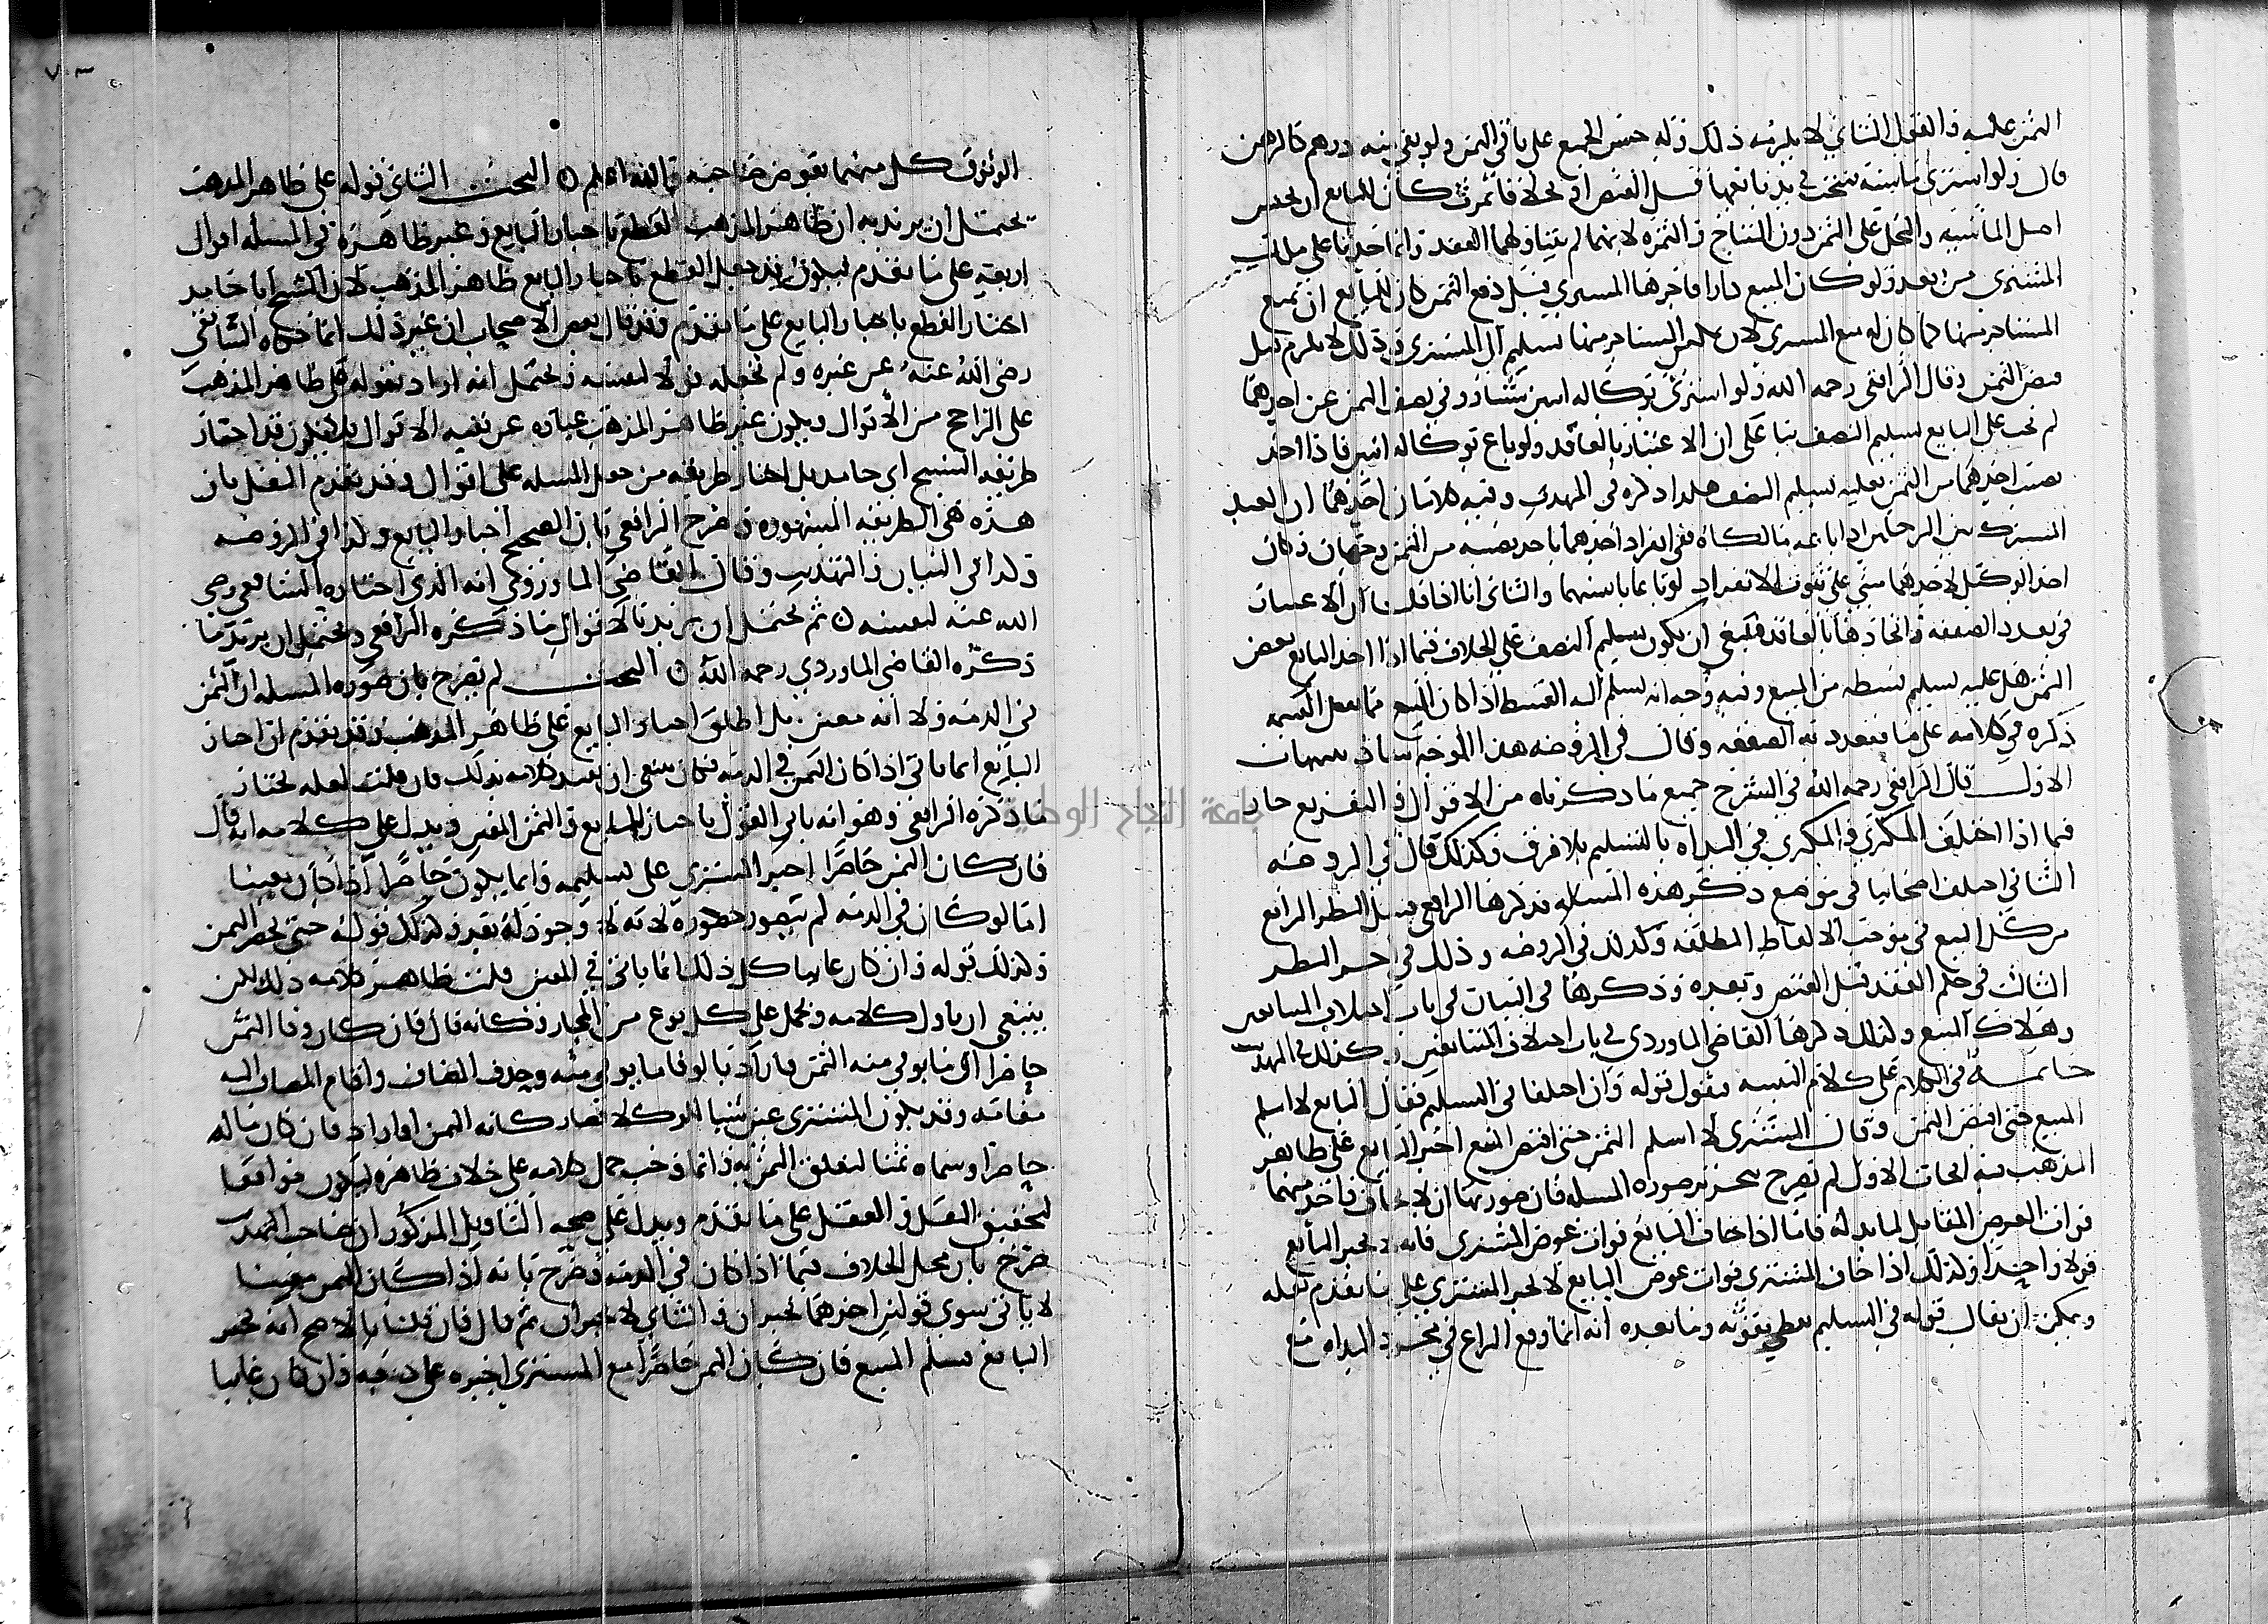 الثمن عليه والقول الثاني لا يلزمه ذلك وله حبس الجميع على باقي الثمن ولو بقي منه درهم كالرهن
قال ولو اشترى ماشية نتجت في يد بايعها قبل القبض او نخلا فاثمرت كان للبايع ان يحبس
اصل الماشية والنخل على الثمن دون النتاج والثمره لانهما لم يتناولهما العقد وانما حدثا على ملك
المشتري من بعد ولو كان المبيع دارا فاجرها المشتري قبل دفع الثمن كان للبايع ان يمنع
المستاجر منها كما كان له منع المشتري لان على المستاجر منها تسليم الى المشتري وذلك لا يلزم قبل
قبض الثمن وقال الرافعي رحمه الله ولو اشترى بوكاله اثنين شيا ووفى نصف الثمن عن احدهما
لم يجب على البايع تسليم النصف بنا على ان الاعتبار بالعاقد ولو باع بوكاله اثنين فاذا اخذ
نصيب احدهما من الثمن فعليه تسليم النصف هكذا ذكره في المهذب وفيه كلامان احدهما ان العبد
المشترك بين الرجلين اذا باعه مالكاه ففي انفراد احدهما باخذ نصيبه من الثمن وجهان وكان
اخذ الوكيل لاحدهما مبني على ثبوت الانفراد لو باعا بانفسهما والثاني انا اذا قلنا ان الاعتبار
في تعدد الصفقه واتحادها بالعاقد فينبغي ان يكون تسليم النصف على الخلاف فيما اذا اخذ البايع بعض
الثمن هل عليه تسليم قسطه من المبيع وفيه وجه انه يسلم اليه القسط اذا كان المبيع مما يقبل القسمه
ذكره في كلامه على ما تتعدد به الصفقه وقال في الروضه هذا الوجه شاذ تنبيهات
الاول قال الرافعي رحمه الله في الشرح جميع ما ذكرناه من الاقوال والتفريع جار
فيما اذا اختلف المكتري والمكري في البداه بالتسليم بلا فرق وكذلك قال في الروضه
الثاني اختلف اصحابنا في موضع ذكر هذه المساله فذكرها الرافعي قبيل النظر الرابع
من كتاب البيع في موجب الالفاظ المطلقه وكذلك في الروضه وذلك في اخر النظر
الثالث في حكم العقد قبل القبض وبعده وذكرها في البيان في باب اختلاف المتبايعين
وهلاك المبيع وكذلك ذكرها القاضي الماوردي في باب اختلاف المتبايعين وكذلك في المهذب
خاتمـــة في الكلام على كلام التنبيه فنقول قوله وان اختلفا في التسليم فقال البايع لا اسلم
المبيع حتى اقبض الثمن وقال المشتري لا اسلم الثمن حتى اقبض المبيع اجبر البايع على ظاهر
المذهب فيه ابحاث الاول لم يصرح بتحرير صوره المسله فان صورتها ان لا يخاف واحد منهما
فوات العوض المقابل لما بذله فاما اذا خاف البايع فوات عوض المشتري فانه لا يجبر البايع
قولا واحدا وكذلك اذا خاف المشتري فوات عوض البايع لا يجبر المشتري على ما تقدم نقله
ويمكن ان يقال قوله في التسليم يعطي بقوته وما بعده انه انما وقع النزاع في مجرد البداه مع
الوثوق كل منهما بعوض صاحبه والله اعلم ن البحث الثاني قوله على ظاهر المذهب
يحتمل ان يريد به ان ظاهر المذهب القطع باجبار البايع وغير ظاهره في المسله اقوال
اربعه على ما تقدم ليكون قد جعل القطع باجبار البايع ظاهر المذهب لان الشيخ ابا حامد
اختار القطع باجبار البايع على ما تقدم وقد قال بعض الاصحاب ان غير ذلك انما حكاه الشافعي
رضي الله عنه عن غيره ولم يجعله قولا لنفسه ويحتمل انه اراد بقوله على ظاهر المذهب
على الراجح من الاقوال ويكون غير ظاهر المذهب عباره عن بقيه الاقوال فلا يكون قد اختار
طريقه الشيخ ابي حامد بل اختار طريقه من جعل المسله على اقوال وقد تقدم النقل بان
هذه هي الطريقه المشهوره وصرح الرافعي بان الصحيح اجبار البايع وكذا في الروضه
وكذا في البيان والتهذيب وقال القاضي الماوردي انه الذي اختاره الشافعي رضي
الله عنه لنفسه ن ثم يحتمل ان يريد بالاقوال ما ذكره الرافعي ويحتمل ان يريد ما
ذكره القاضي الماوردي رحمه الله ن البحث لم يصرح بان صوره المسله ان الثمن
في الذمه ولا انه معين بل اطلق اجبار البايع على ظاهر المذهب وقد تقدم ان اجبار
البايع انما ياتي اذا كان الثمن في الذمه فكان ينبغي ان يقيد كلامه بذلك فان قلت لعله يختار
ما ذكره الرافعي وهو انه ياتي القول باجبار البايع والثمن المعين ويدل على كلامه انه قال
فان كان الثمن حاضرا اجبر المشتري على تسليمه وانما يكون حاضرا اذا كان معينا
اما لو كان في الذمه لم يتصور حضوره لانه لا وجود له بعد وكذلك قوله حتى يحضر الثمن
وكذلك قوله وان كان غايبا كل ذلك انما ياتي في المعين قلت ظاهر كلامه ذلك لكن
ينبغي ان ياول كلامه ويحمل على كل نوع من المجاز وكانه قال فان كان وفا الثمن
حاضرا اي ما يوفي منه الثمن فاراد بالوفا ما يوفي منه وحذف المضاف واقام المضاف اليه
مقامه وقد يكون المشتري عين شيا للوكلا فصار كانه الثمن او اراد فان كان ماله
حاضرا وسماه ثمنا لتعلق الثمن به وانما وجب حمل كلامه على خلاف ظاهره ليكون موافقا
لتحقيق النقل والعقل على ما تقدم ويدل على صحه التاويل المذكور ان صاحب المهذب
صرح بان محل الخلاف فيما اذا كان في الذمه وصرح بانه اذا كان الثمن معينا
لا ياتي سوى قولين احدهما يجبران والثاني لا يجبران ثم قال فان قلنا بالاصح انه يجبر
البايع فسلم المبيع فان كان الثمن حاضرا مع المشتري اجبره على دفعه وان كان غايبا
جامعة النجاح الوطنية